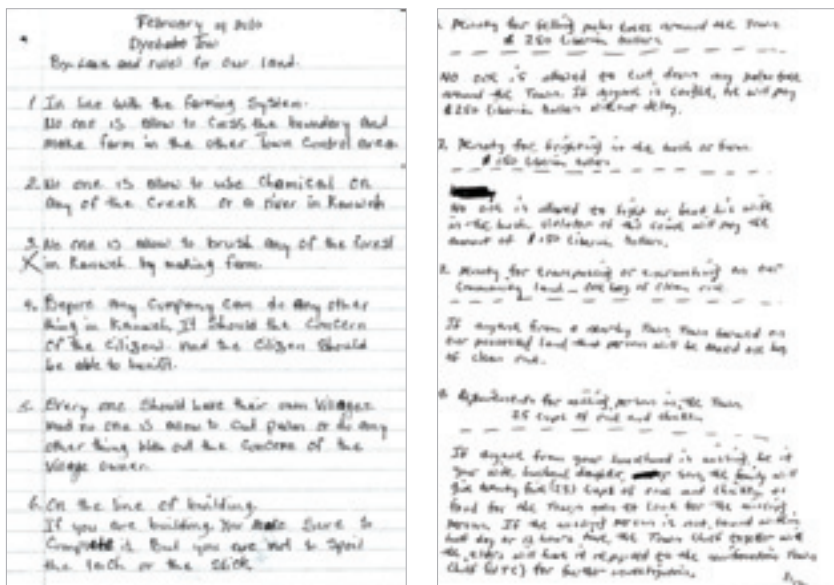 February
Town
By-Laws and rules for our land.
1. In line with the farming System.
No one is allow to Cross the boundary And
make farm in the other Town Control area.
2. No one is allow to use Chemical on
Any of the Creek or a river in
3. No one is allow to brush any of the forest
in by making farm.
4. Before any Company Can do Any other
thing in It Should the Concern
of the Citizens And the Citizen Should
be able to
5. Every one Should have their own Villages
And no one is allow to Cut palm or do Any
other thing the Concern of the
Village owner.
6. On the line of building.
If you are building, You make Sure to
Complete it But you are not to Spoil
the or the Stick
1. Penalty for felling palm trees around the Town
$ 250 Liberian dollars
No one is allowed to cut down any palm tree
around the Town. If anyone is he will pay
$250 Liberian dollars without delay.
2. Penalty for fighting in the bush or farm
$ 150 Liberian dollars
No one is allowed to fight or beat his wife
in the bush, violator of this will pay the
amount of $150 Liberian dollars.
3. Penalty for on our
Community land - one bag of clean rice
If anyone from a nearby Town on
our land that person will be one bag
of clean rice.
4. Requirements for missing person in the Town
25 Cups of rice and
If anyone from your household is missing be it
your wife, husband, daughter, or son, the family will
give twenty five (25) Cups of rice and as
food for the Town men to look for the missing
person. If the missing person is not found within
half day or 12 hours time, the Town Chief together with
the elders will have it reported to the Town
Chief for further investigation.